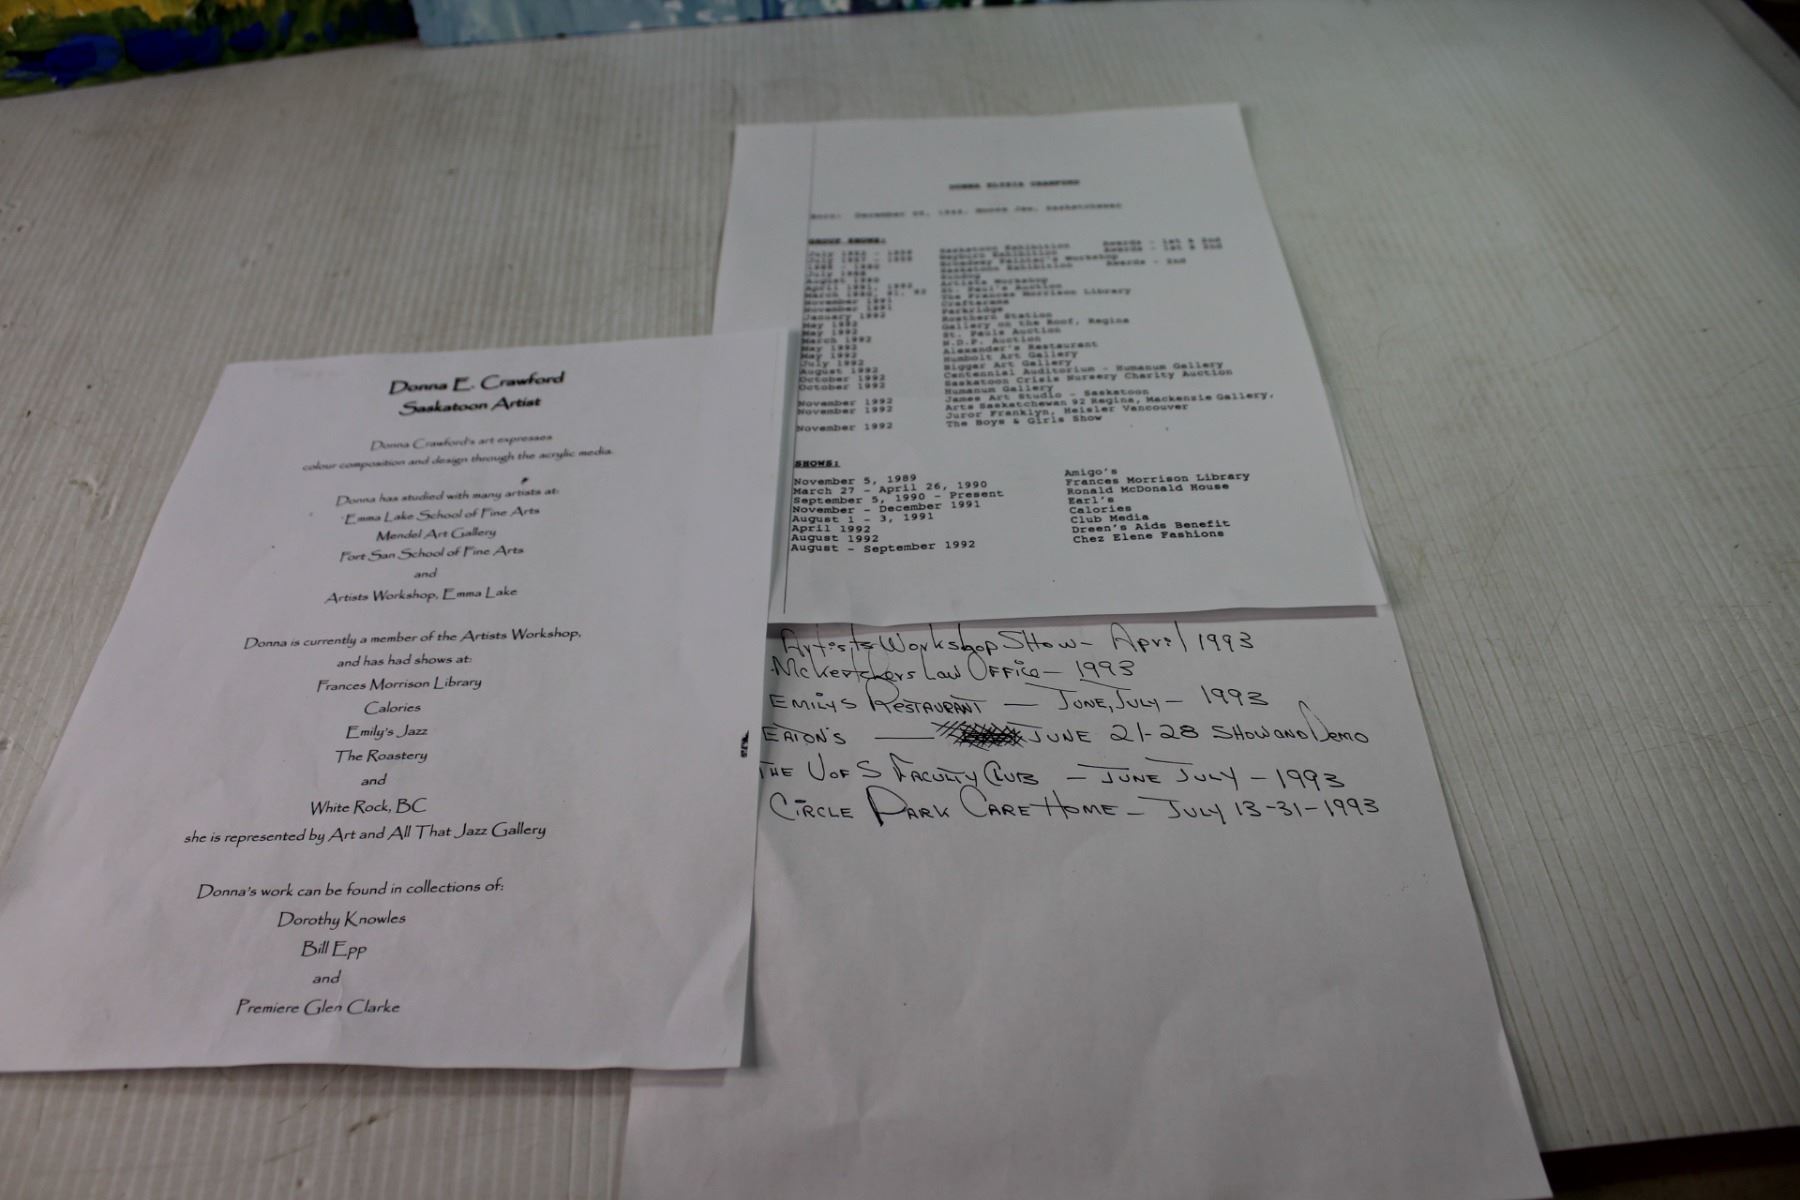 Donna E. Crawford
Saskatoon Artist
Donna Crawford's art expresses
colour composition and design through the acrylic media.
Donna has studied with many artists at:
Emma Lake School of Fine Arts
Mendel Art Gallery
Fort San School of Fine Arts
and
Artists Workshop, Emma Lake
Donna is currently a member of the Artists Workshop,
and has had shows at:
Frances Morrison Library
Calories
Emily's Jazz
The Roastery
and
White Rock, BC
she is represented by Art and All That Jazz Gallery
Donna's work can be found in collections of:
Dorothy Knowles
Bill Epp
and
Premiere Glen Clarke
DONNA CRAWFORD
Born: December Saskatchewan
GROUP SHOWS:
July Saskatoon Exhibition Awards - 1st & 2nd
July Exhibition Awards - 1st & 2nd
Broadway Painter's Workshop
July Saskatoon Exhibition Awards - 2nd
August
April 1991, 1992 Artists Workshop
March St. Paul's Auction
November 1991 The Frances Morrison Library
November 1991 Craftarama
January 1992 Parkridge
May 1992 Rosthern Station
May 1992 Gallery on the Roof, Regina
March 1992 St. Pauls Auction
May 1992 N.D.P. Auction
May 1992 Alexander's Restaurant
July 1992 Humbolt Art Gallery
August 1992 Biggar Art Gallery
October 1992 Centennial Auditorium - Humanum Gallery
October 1992 Saskatoon Crisis Nursery Charity Auction
Humanum Gallery
November 1992 James Art Studio - Saskatoon
November 1992 Arts Saskatchewan 92 Regina, Mackenzie Gallery,
Juror Franklyn, Heisler Vancouver
November 1992 The Boys & Girls Show
SHOWS:
November 5, 1989 Amigo's
March 27 - April 26, 1990 Frances Morrison Library
September 5, 1990 - Present Ronald McDonald House
November - December 1991 Earl's
August 1 - 3, 1991 Calories
April 1992 Club Media
August 1992 Dreen's Aids Benefit
August - September 1992 Chez Elene Fashions
Artists Workshop Show - April 1993
McKerchers Law Office - 1993
Emilys Restaurant - June, July - 1993
Eaton's - June 21-28 Show and Demo
The U of S Faculty Club - June July - 1993
Circle Park Care Home - July 13-31-1993